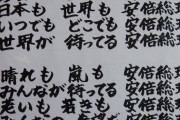 日本も 世界も 安倍総理
いつでも どこでも 安倍総理
世界が 待ってる 安倍総理
晴れも 嵐も 安倍総理
みんなが 待ってる 安倍総理
老いも 若きも 安倍総理